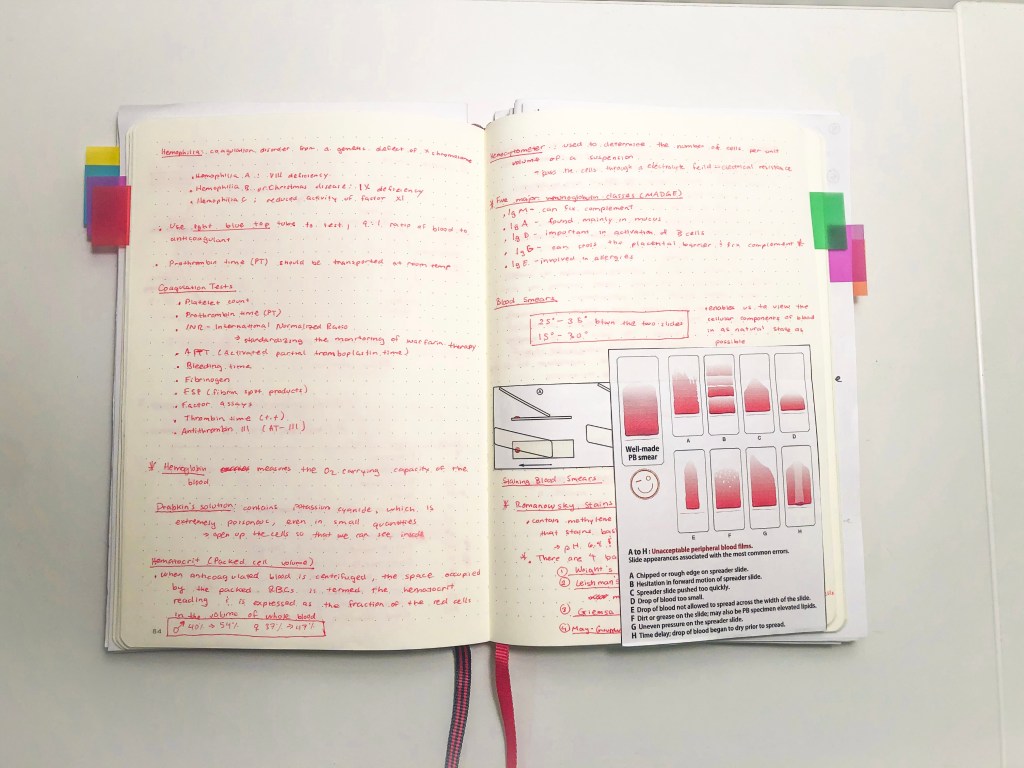 Hemophilia: coagulation disorder from a genetic defect of X chromosome
• Hemophilia A: VIII deficiency
• Hemophilia B or Christmas disease: IX deficiency
• Hemophilia C: reduced activity of factor XI
• Use light blue top tube to test, 9:1 ratio of blood to
anticoagulant
• Prothrombin time (PT) should be transported at room temp
Coagulation Tests
• Platelet count
• Prothrombin time (PT)
• INR - International Normalized Ratio
→ standardizing the monitoring of warfarin therapy
• APPT (activated partial tromboplastin time)
• Bleeding time
• Fibrinogen
• FSP (fibrin split products)
• Factor assays
• Thrombin time (t.t)
• Antithrombin III (AT-III)
* Hemoglobin measures the O2 carrying capacity of the
blood
Drabkin's solution: contains potassium cyanide, which is
extremely poisonous, even in small quantities
→ open up the cells so that we can see inside
Hematocrit (Packed cell volume)
• When anticoagulated blood is centrifuged, the space occupied
by the packed RBCs is termed the hematocrit
reading & is expressed as the fraction of the red cells
in the volume of whole blood
♂ 40% → 54% ♀ 37% → 47%
84
Hemocytometer: used to determine the number of cells per unit
volume of a suspension
→ pass the cells through a electrolyte feild = electrical resistance
* Five major immunoglobulin classes (MADGE)
• Ig M - can fix complement
• Ig A - found mainly in mucus
• Ig D - important in activation of B cells
• Ig G - can cross the placental barrier & fix complement *
• Ig E - involved in allergies
Blood Smears
25° - 35° btwn the two slides
15° - 30°
• enables us to view the
cellular components of blood
in as natural state as
possible
A
Staining Blood Smears
* Romanowsky Stains
• contain methylene
that stains
→ pH 6.4
* There are 4
① Wright's
② Leishman's
③ Giemsa
④ May-
Well-made
PB smear
A B C D
E F G H
A to H: Unacceptable peripheral blood films.
Slide appearances associated with the most common errors.
A Chipped or rough edge on spreader slide.
B Hesitation in forward motion of spreader slide.
C Spreader slide pushed too quickly.
D Drop of blood too small.
E Drop of blood not allowed to spread across the width of the slide.
F Dirt or grease on the slide; may also be PB specimen elevated lipids.
G Uneven pressure on the spreader slide.
H Time delay; drop of blood began to dry prior to spread.